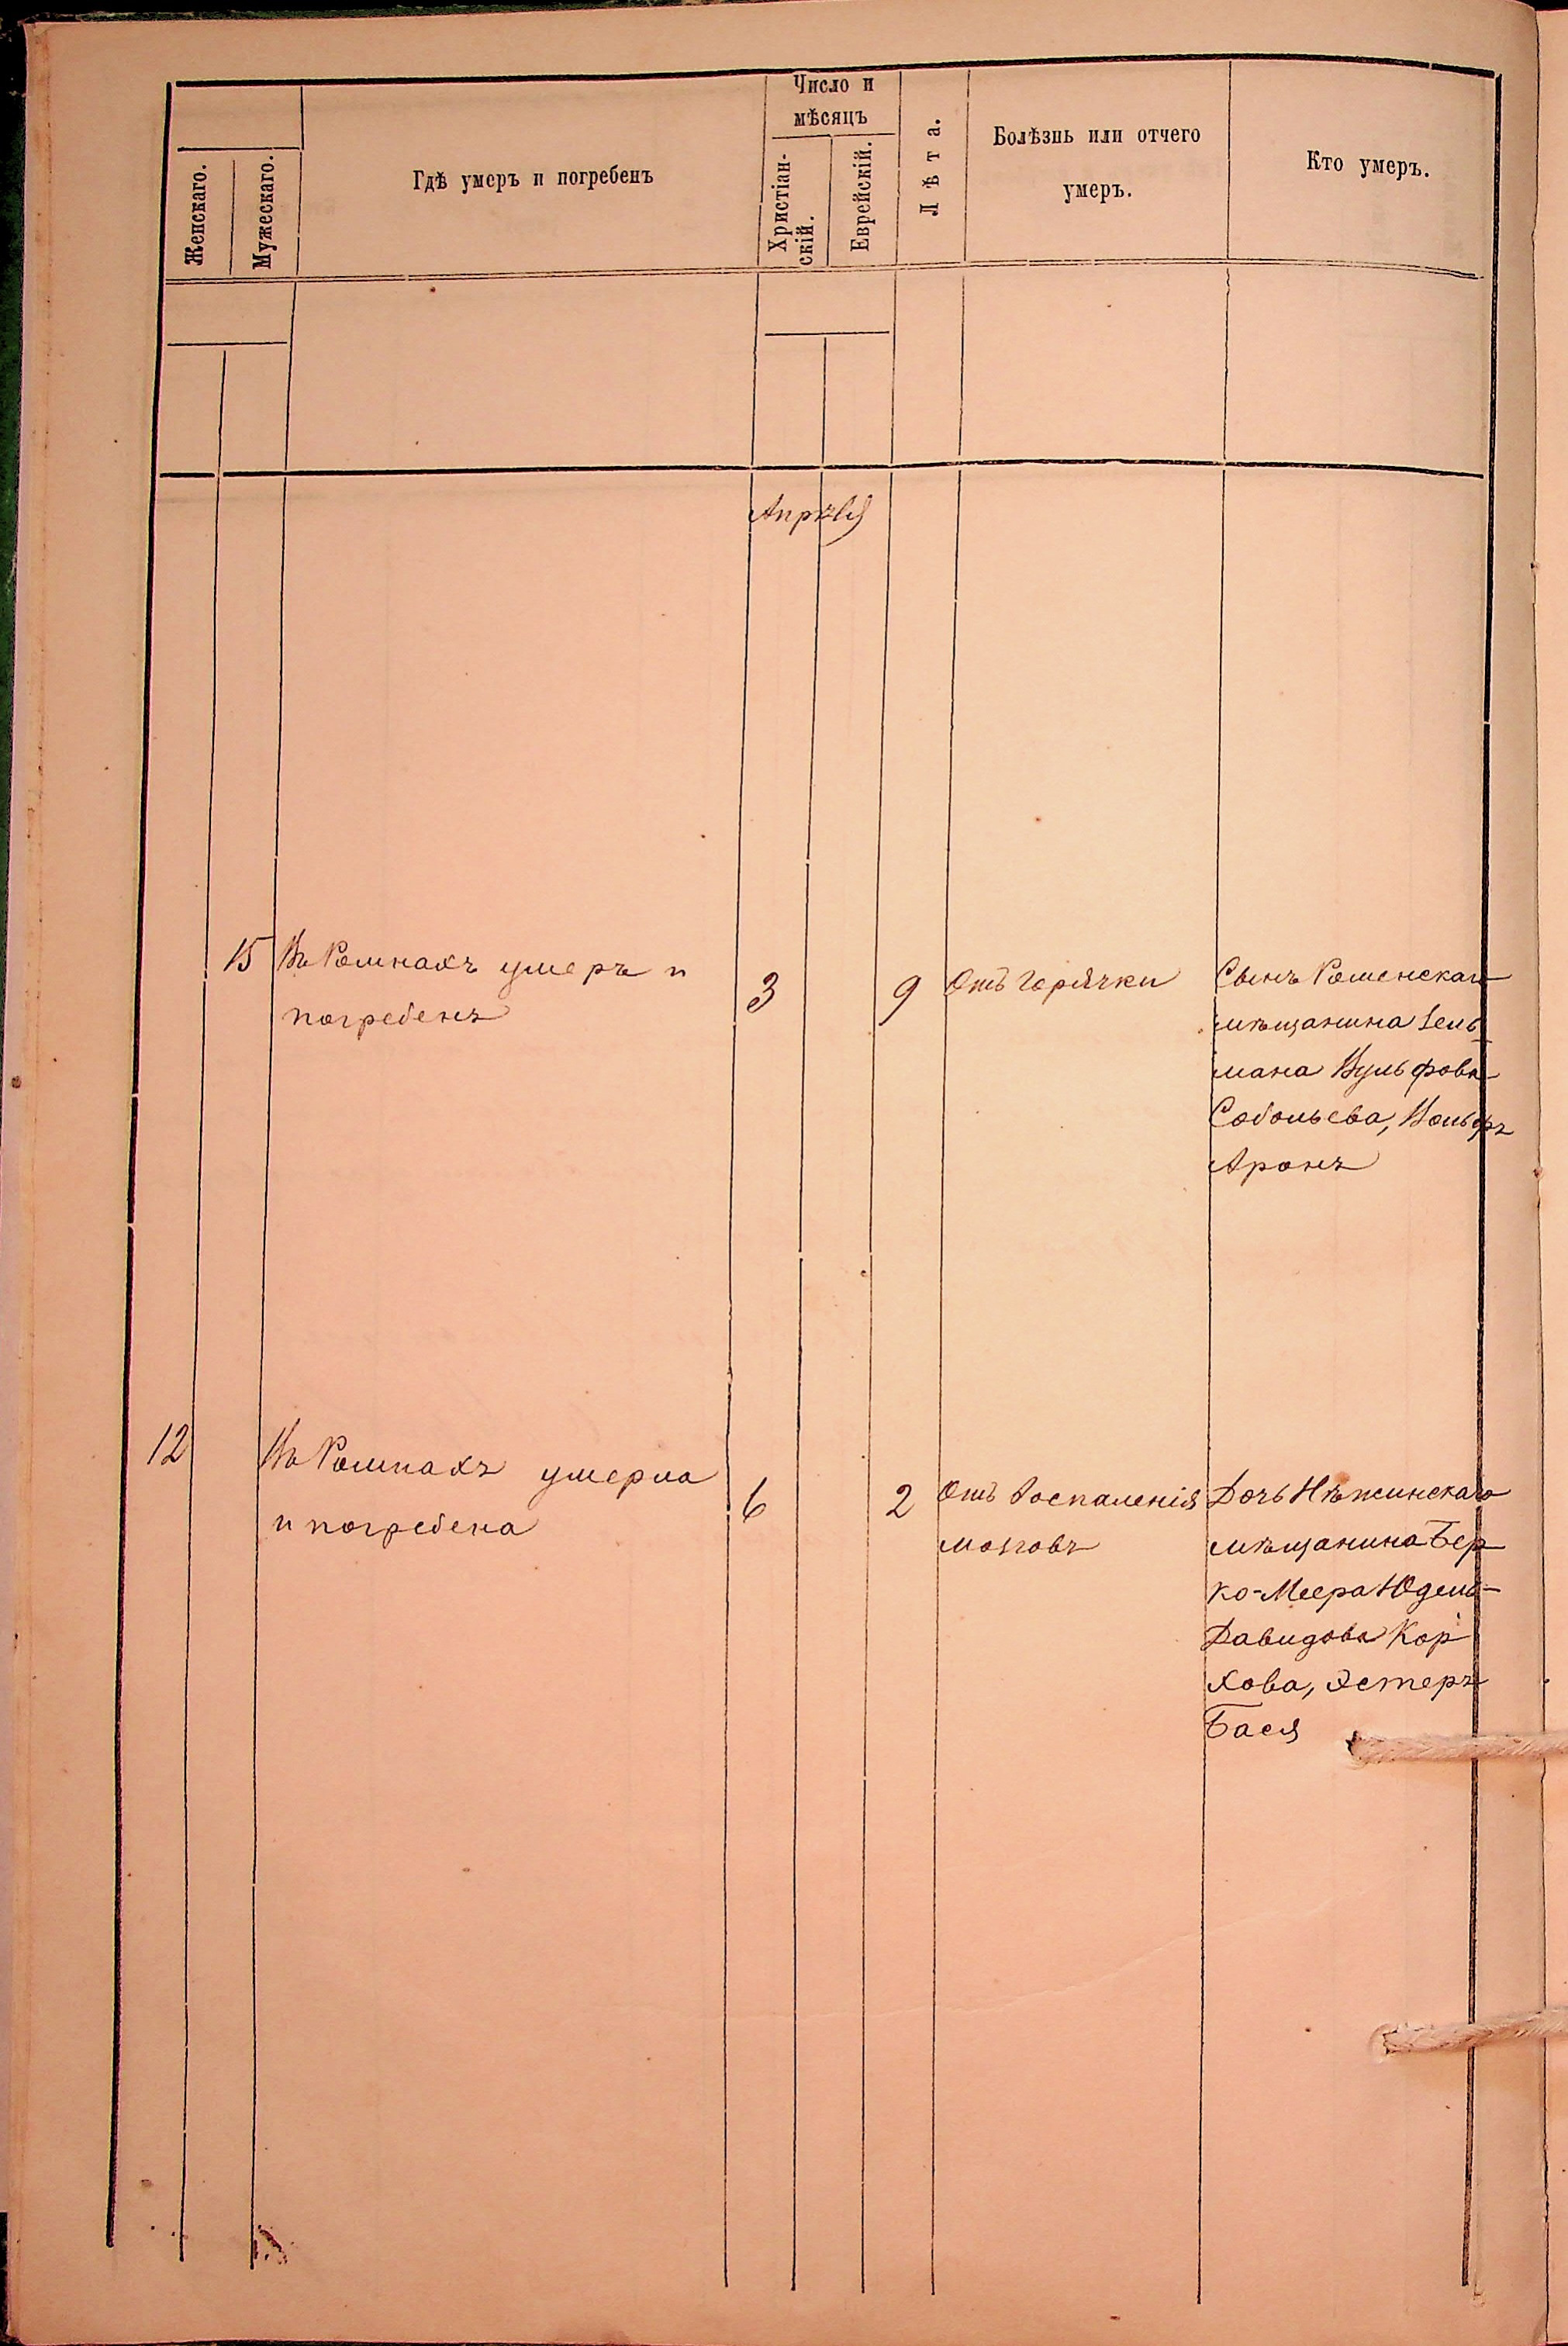 Женскаго.
Мужескаго.
Гдѣ умеръ и погребенъ
Число и
мѣсяцъ
Христіан-
скій.
Еврейскій.
Лѣта.
Болѣзнь или отчего
умеръ.
Кто умеръ.
Апрѣля
15
Въ Ромнахъ умеръ и
погребенъ
3
9
Отъ горячки
Сынъ Роменскаго
мѣщанина Зель
мана Вульфова
Собольева, Вольфъ
Аронъ
12
Въ Ромнахъ умерла
и погребена
6
2
Отъ воспаленія
мозговъ
Дочь Нѣжинскаго
мѣщанина Бер
ко-Меера Юдель-
Давидова Кор
хова, Эстеръ
Бася